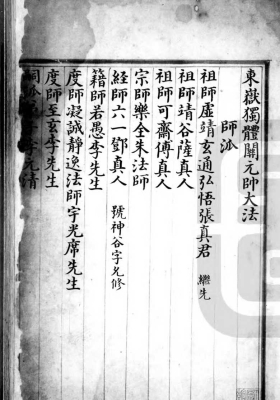 東嶽獨體關元帥大法
師派
祖師虛靖玄通弘悟張真君 繼先
祖師靖谷薩真人
祖師可齋傅真人
宗師樂全朱法師
經師六一鄧真人 號神谷字允修
籍師若愚李先生
度師凝誠靜逸法師宇光席先生
度師至玄李先生